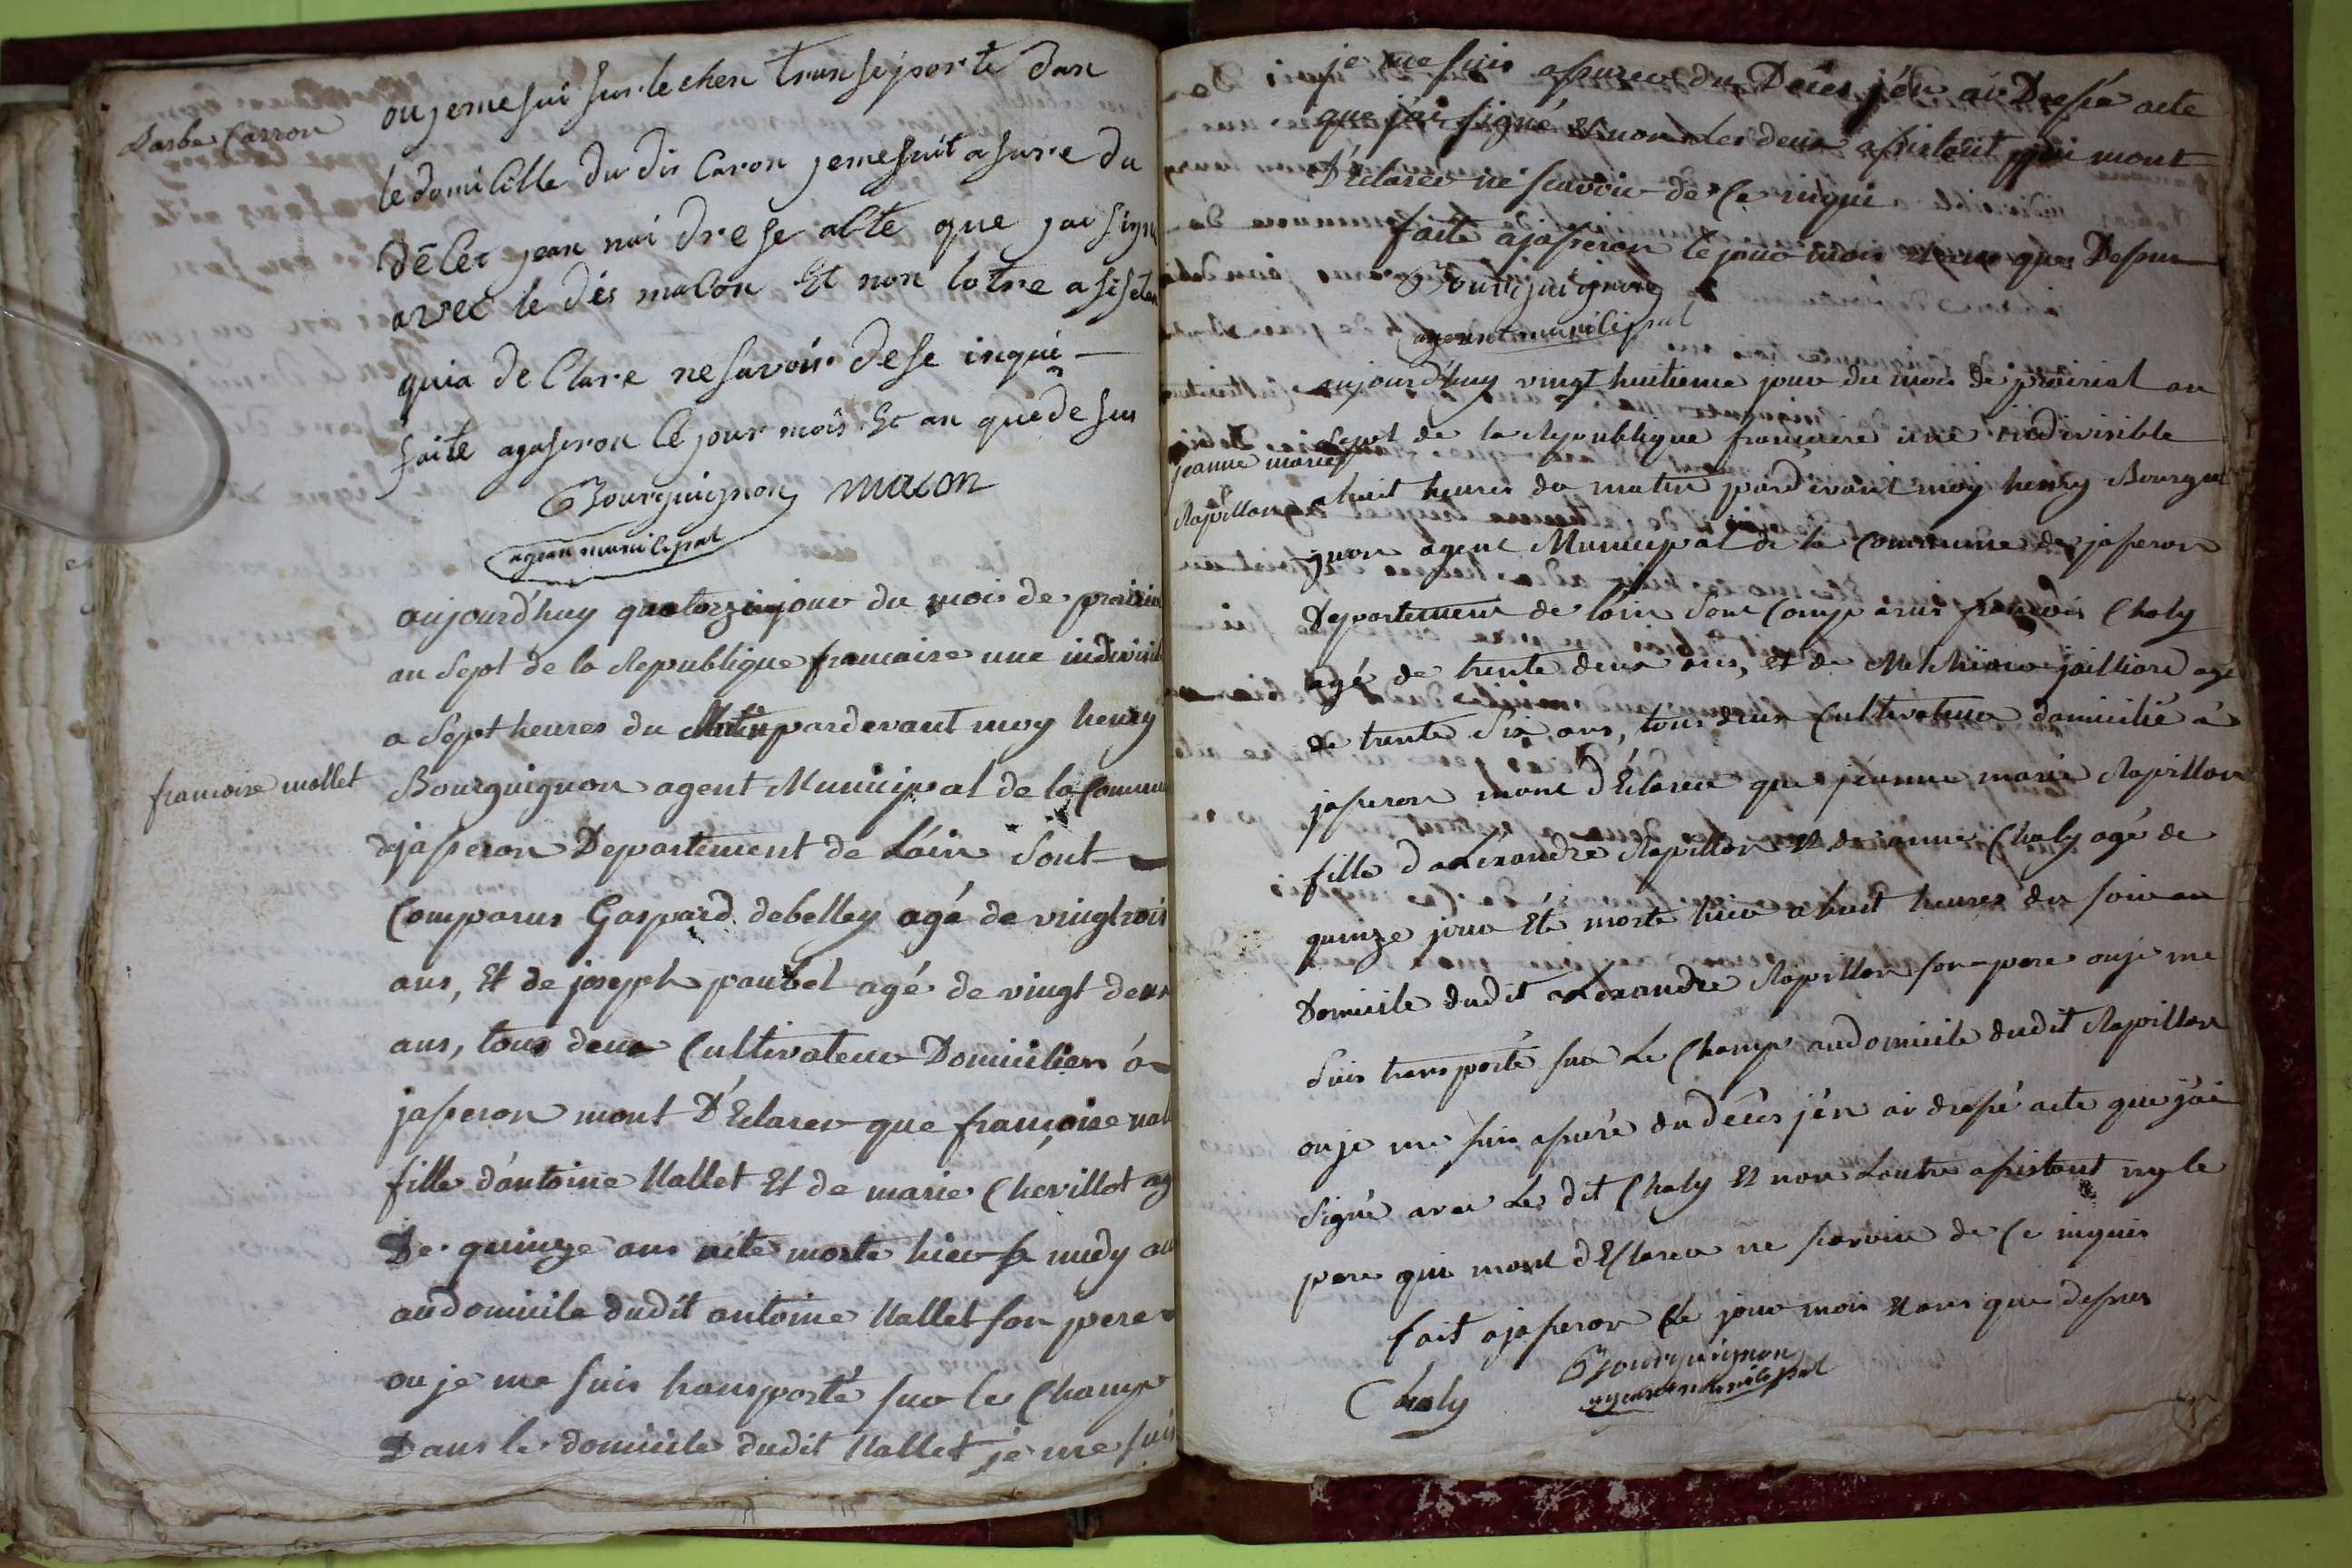 Barbe Carron
ou je me sui sur le chen transeporte dan
le domicille du dis Caron je me suit a sure du
déces jean nai drese alte que jai signe
avec le dis maCon Et non lotre a sisten
quia de Clare ne savoir de se inqui
faite a jaseron le jour mois Et an que de sus
Bourguignon maCon
agean municipal
aujourd'huy quatorze jour du mois de prairia
an Sept de la Republique francaise une indivisib
a Sept heures du Matin pardevant moy henry
francoise mollet
Bourguignon agent Municipal de la Commu
de jasseron Departement de Lain Sont
Comparus Gaspard debelley agé de vingtrois
ans, Et de joseph paubel agé de vingt deux
ans, tous deux Cultivateur Domicilien á
jasseron mont D'Eclarer que françoise
fille d'antoine Mallet Et de marie Chevillot ag
De quinze ans morte hier midy au
au domicile dudit antoine Mallet son pere
ou je me suis transporté sur le Champ
Dans le domicile dudit Mallet je me suis
je me suis assurer du Deces j'én ai Dressé acte
que j'ai signé Et non les deux assistant qui mont
D'Eclarer ne scavoir de Ce
faite a jasseron le jour mois et ans que Dessus
Bourguignon
ageant municipal
aujourd'huy vingt huitieme jour du mois de prairial an
Sept de la Republique francaise une indivisible
jeanne marie
Rapillon
a huit heures du matin pard'evant moy henry Bourgui
gnon agent Municipal de la Commune de jasseron
Departement de lain Sont Comparus françois Chaly
agé de trente deux ans, et de Melchiore jailliard agé
de trente Six ans, tous deux Cultivateur domicilié à
jasseron mont d'Eclarer que jeanne marie Rapillon
fille d'alexandre Rapillon et de anne Chaly agé de
quinze jour Eté morte hier a huit heures du soir au
Domicile dudit alexandre Rapillon son pere ou je me
Suis transporté sur Le Champ au domicile dudit Rapillon
ou je me suis assuré du deces j'én ai dressé acte que j'ai
Signé avec Le dit Chaly Et non Lautre assistant ny le
pere qui mont d'Eclarer ne scavoir de Ce
fait a jasseron Le jour mois et ans que dessus
Chaly Bourguignon
ageant municipal